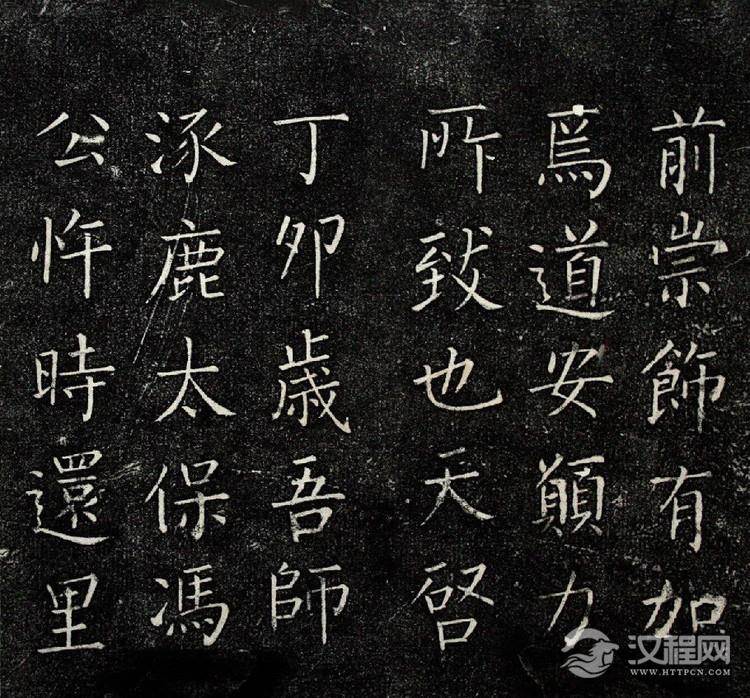 前崇飾有加
焉道安顛力
所致也天啓
丁卯歲吾師
涿鹿太保馮
公忤時還里
汉程网
WWW.HTTPCN.COM